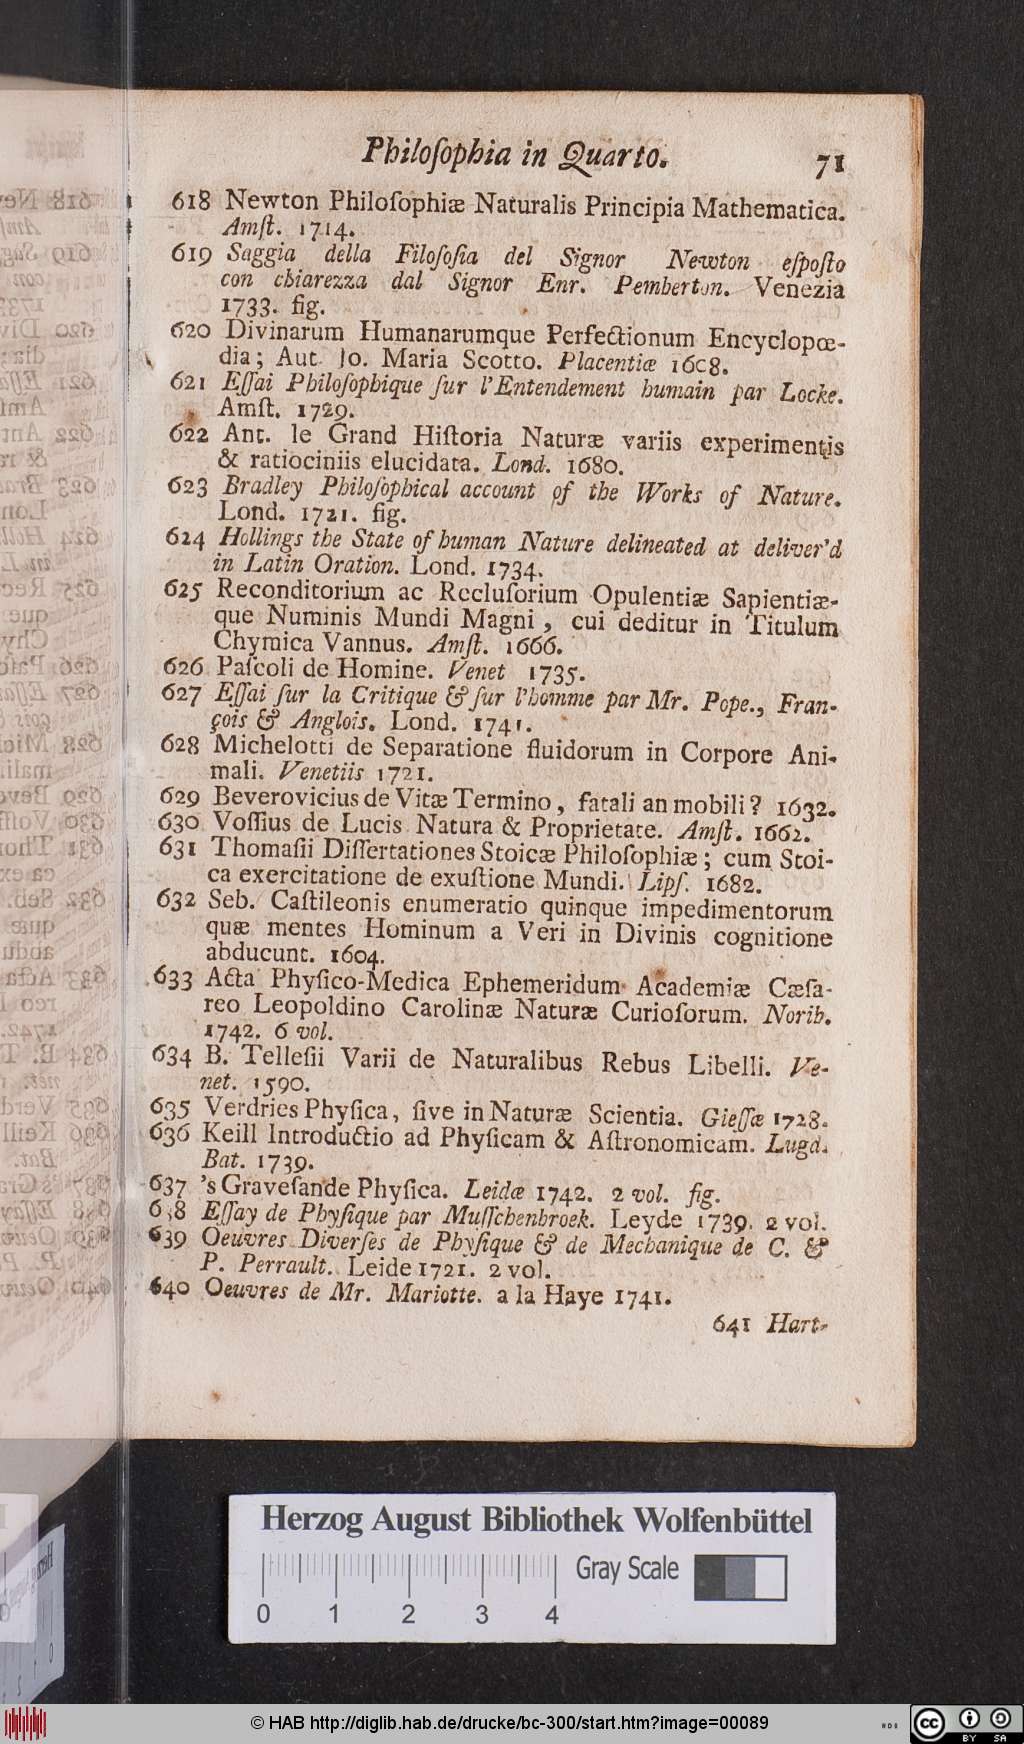 Philoſophia in Quarto. 71
618 Newton Philoſophiæ Naturalis Principia Mathematica.
Amſt. 1714.
619 Saggia della Filoſofia del Signor Newton eſpoſto
con chiarezza dal Signor Enr. Pemberton. Venezia
1733. fig.
620 Divinarum Humanarumque Perfectionum Encyclopœ-
dia; Aut. Jo. Maria Scotto. Placentiæ 1608.
621 Eſſai Philoſophique ſur l'Entendement humain par Locke.
Amſt. 1729.
622 Ant. le Grand Hiſtoria Naturæ variis experimentis
& ratiociniis elucidata. Lond. 1680.
623 Bradley Philoſophical account of the Works of Nature.
Lond. 1721. fig.
624 Hollings the State of human Nature delineated at deliver'd
in Latin Oration. Lond. 1734.
625 Reconditorium ac Recluſorium Opulentiæ Sapientiæ-
que Numinis Mundi Magni, cui deditur in Titulum
Chymica Vannus. Amſt. 1666.
626 Paſcoli de Homine. Venet 1735.
627 Eſſai ſur la Critique & ſur l'homme par Mr. Pope., Fran-
çois & Anglois. Lond. 1741.
628 Michelotti de Separatione fluidorum in Corpore Ani-
mali. Venetiis 1721.
629 Beverovicius de Vitæ Termino, fatali an mobili? 1632.
630 Voſſius de Lucis Natura & Proprietate. Amſt. 1662.
631 Thomaſii Diſſertationes Stoicæ Philoſophiæ; cum Stoi-
ca exercitatione de exuſtione Mundi. Lipſ. 1682.
632 Seb. Caſtileonis enumeratio quinque impedimentorum
quæ mentes Hominum a Veri in Divinis cognitione
abducunt. 1604.
633 Acta Phyſico-Medica Ephemeridum Academiæ Cæſa-
reo Leopoldino Carolinæ Naturæ Curioſorum. Norib.
1742. 6 vol.
634 B. Telleſii Varii de Naturalibus Rebus Libelli. Ve-
net. 1590.
635 Verdries Phyſica, ſive in Naturæ Scientia. Gieſſæ 1728.
636 Keill Introductio ad Phyſicam & Aſtronomicam. Lugd.
Bat. 1739.
637 's Graveſande Phyſica. Leidæ 1742. 2 vol. fig.
638 Eſſay de Phyſique par Muſſchenbroek. Leyde 1739. 2 vol.
639 Oeuvres Diverſes de Phyſique & de Mechanique de C. &
P. Perrault. Leide 1721. 2 vol.
640 Oeuvres de Mr. Mariotte. a la Haye 1741.
641 Hart-
Herzog August Bibliothek Wolfenbüttel
Gray Scale
0 1 2 3 4
© HAB http://diglib.hab.de/drucke/bc-300/start.htm?image=00089
cc BY SA